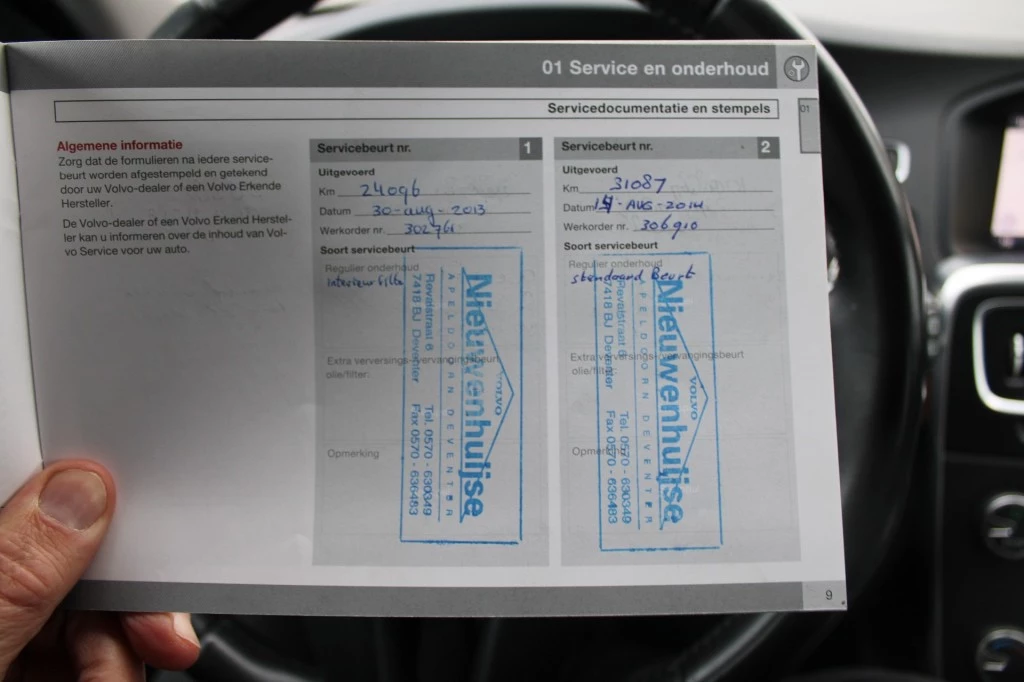 01 Service en onderhoud
Servicedocumentatie en stempels
01
Algemene informatie
Zorg dat de formulieren na iedere service-
beurt worden afgestempeld en getekend
door uw Volvo-dealer of een Volvo Erkende
Hersteller.
De Volvo-dealer of een Volvo Erkend Herstel-
ler kan u informeren over de inhoud van Vol-
vo Service voor uw auto.
Servicebeurt nr. 1
Uitgevoerd
Km 24096
Datum 30-aug-2013
Werkorder nr. 302761
Soort servicebeurt
Regulier onderhoud
Interieur filter
Extra verversings-/vervangingsbeurt
olie/filter:
Opmerking
VOLVO
Nieuwenhuijse
APELDOORN DEVENTER
Revalstraat 8 Tel. 0570 - 630349
7418 BJ Deventer Fax 0570 - 636483
Servicebeurt nr. 2
Uitgevoerd
Km 31087
Datum 14-AUG-2014
Werkorder nr. 306910
Soort servicebeurt
Regulier onderhoud
standaard Beurt
Extra verversings-/vervangingsbeurt
olie/filter:
Opmerking
VOLVO
Nieuwenhuijse
APELDOORN DEVENTER
Revalstraat 8 Tel. 0570 - 630349
7418 BJ Deventer Fax 0570 - 636483
9